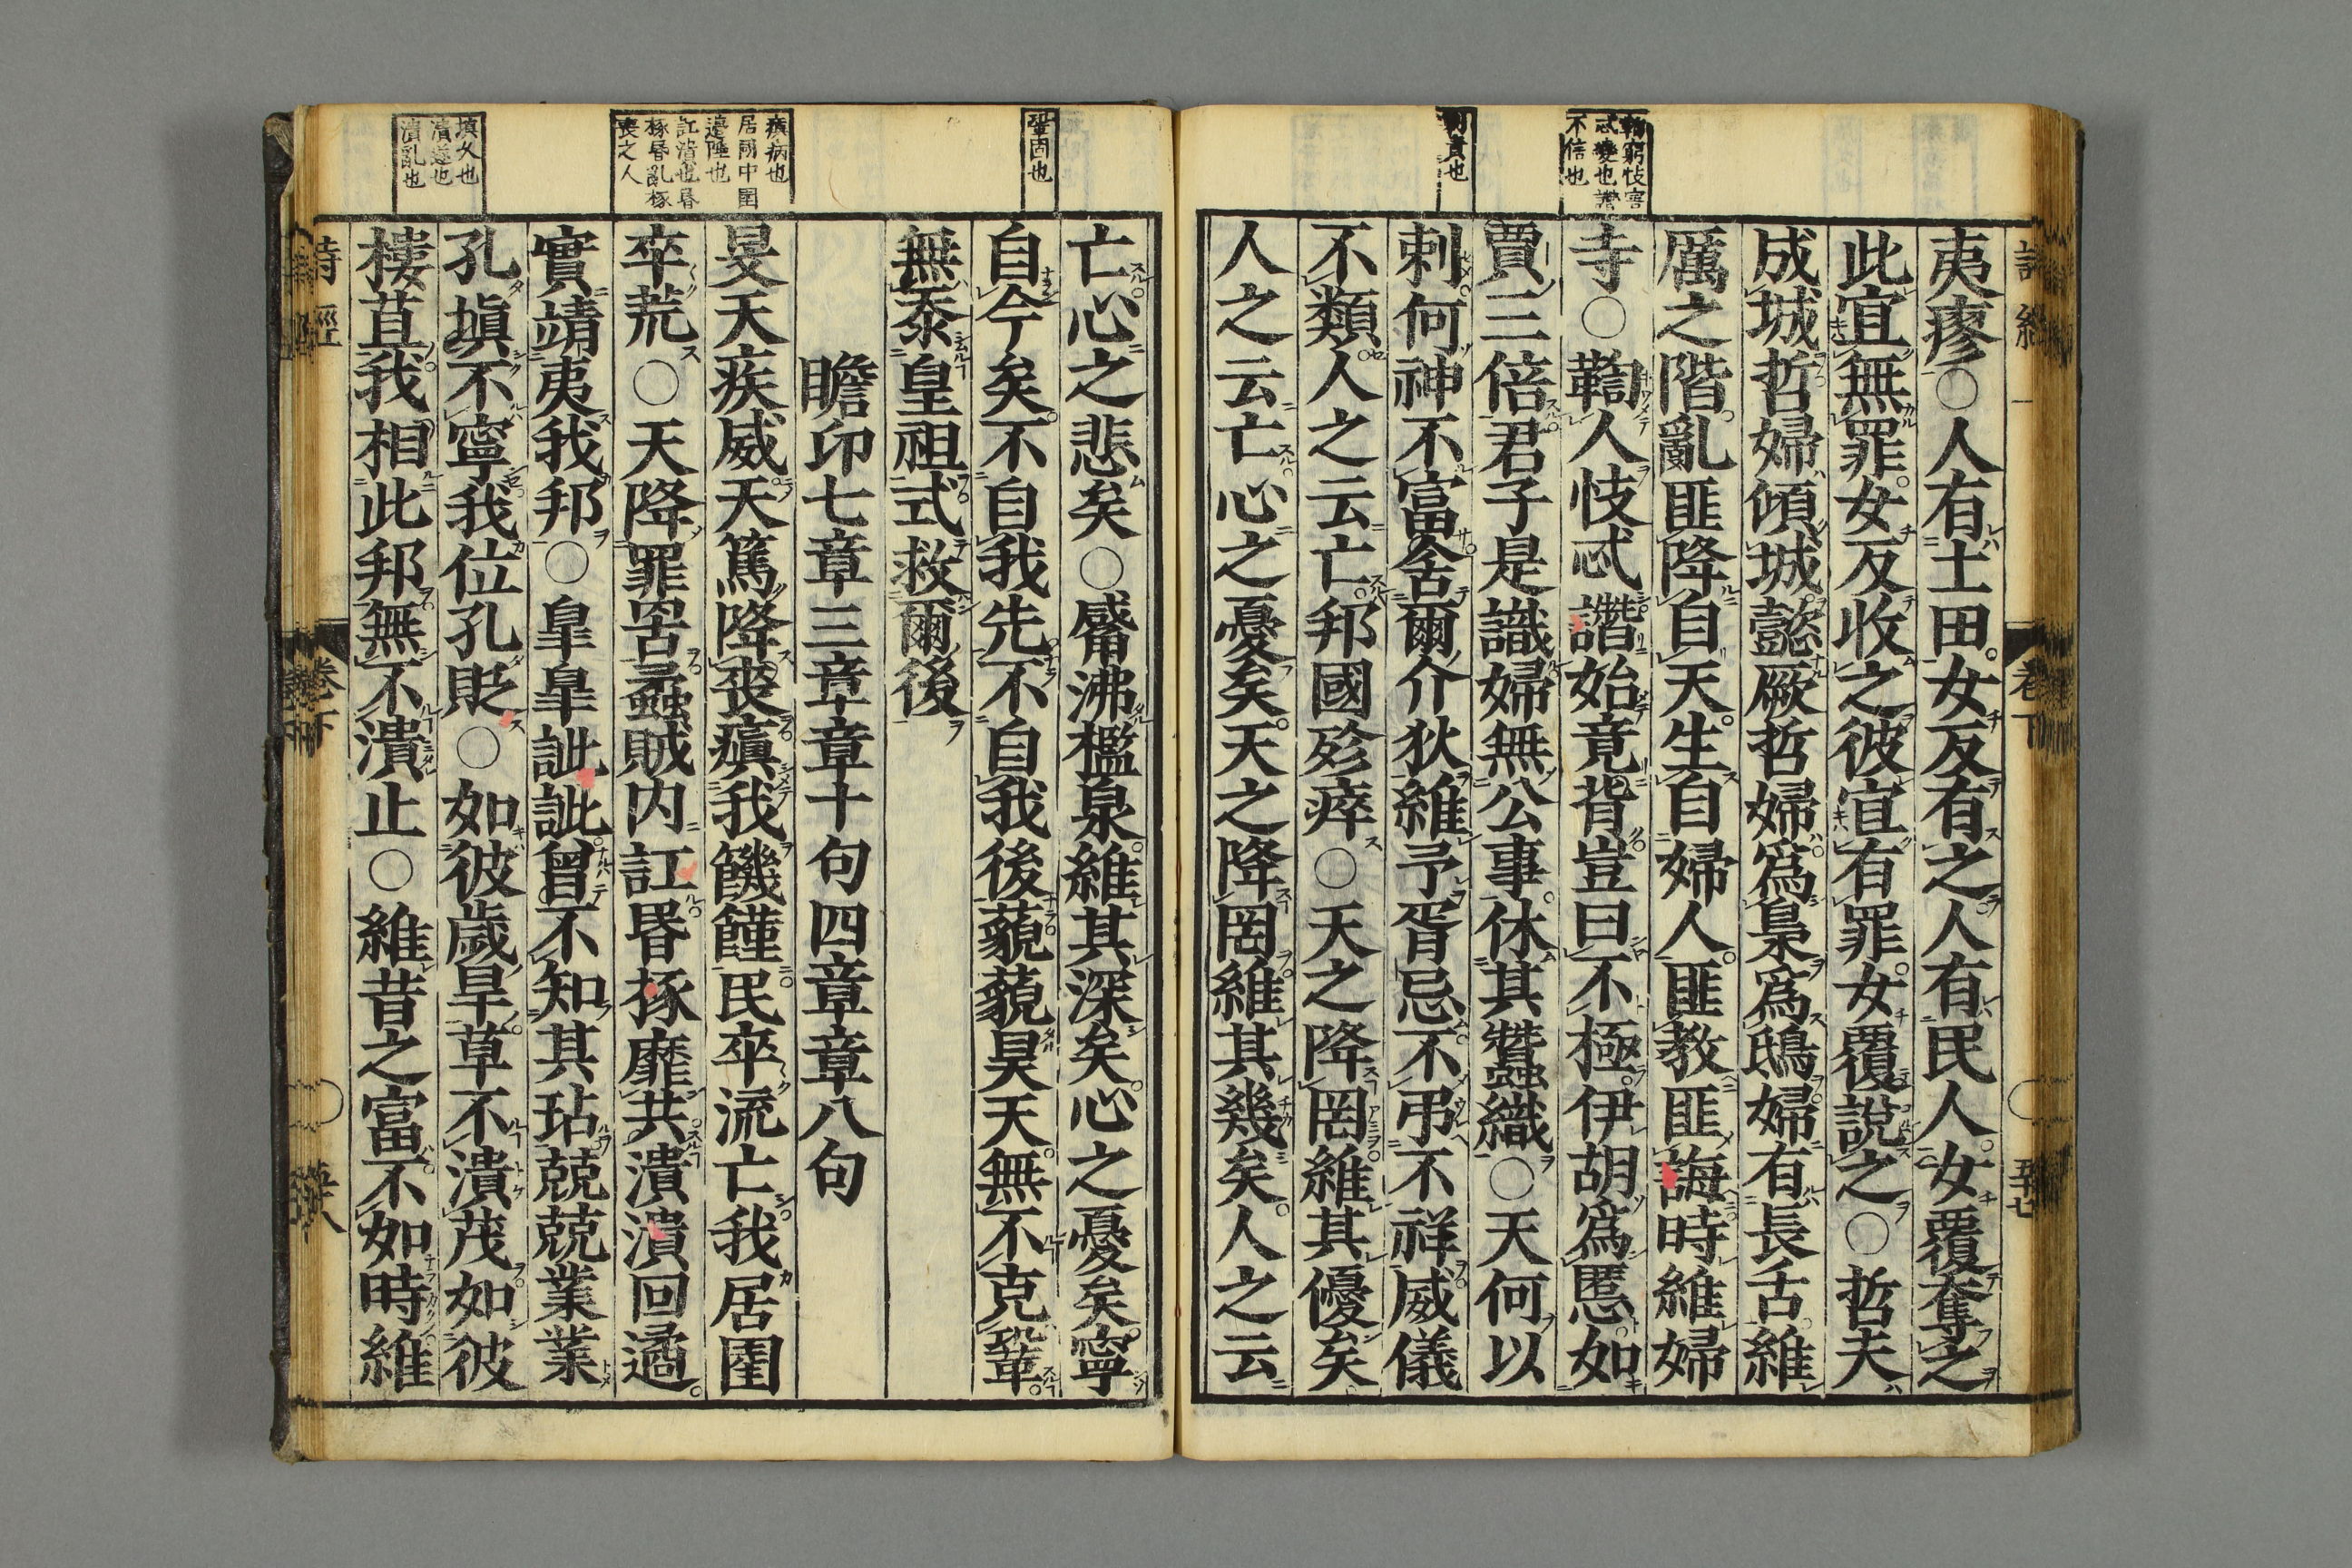 夷瘳○人有土田女反有之人有民人女覆奪之
此宜無罪女反收之彼宜有罪女覆說之○哲夫
成城哲婦傾城懿厥哲婦爲梟爲鴟婦有長舌維
厲之階亂匪降自天生自婦人匪教匪誨時維婦
寺○鞫人忮忒譖始竟背豈曰不極伊胡爲慝如
賈三倍君子是識婦無公事休其蠶織○天何以
刺何神不富舍爾介狄維予胥忌不弔不祥威儀
不類人之云亡邦國殄瘁○天之降罔維其優矣
人之云亡心之憂矣天之降罔維其幾矣人之云
鞫窮忮害
忒變也譖
不信也
責也
詩經
卷下
五十七
亡心之悲矣○觱沸檻泉維其深矣心之憂矣寧
自今矣不自我先不自我後藐藐昊天無不克鞏
無忝皇祖式救爾後
瞻卬七章三章章十句四章章八句
旻天疾威天篤降喪瘨我饑饉民卒流亡我居圉
卒荒○天降罪罟蟊賊内訌昬椓靡共潰潰回遹
實靖夷我邦○皐皐訿訿曾不知其玷兢兢業業
孔塡不寧我位孔貶○如彼歲旱草不潰茂如彼
棲苴我相此邦無不潰止○維昔之富不如時維
鞏固也
瘨病也
居國中圉
邊陲也
訌潰也昬
椓昬亂椓
喪之人
塡久也
潰遂也
潰亂也
詩經
卷下